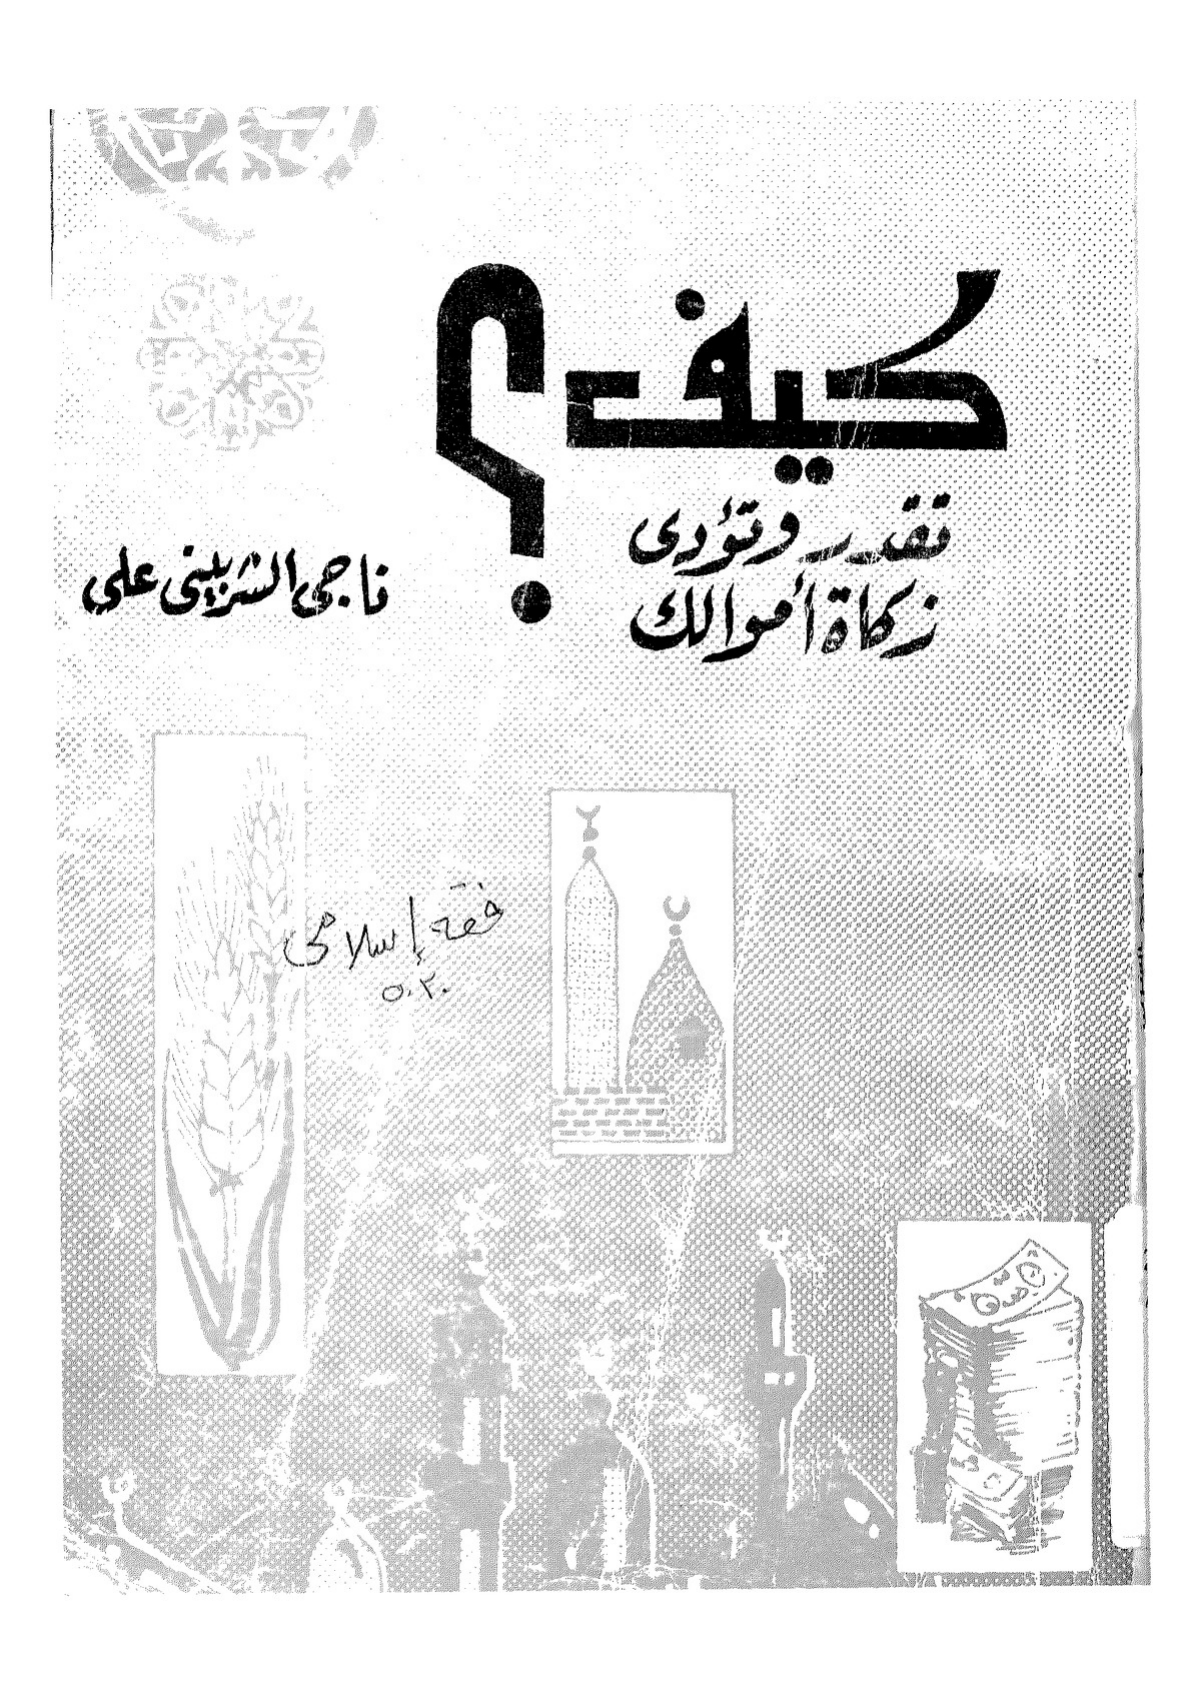 كيف؟
تقدر وتؤدى
زكاة أموالك
ناجى الشربينى علي
فقه إسلامى
٥٠٢٠